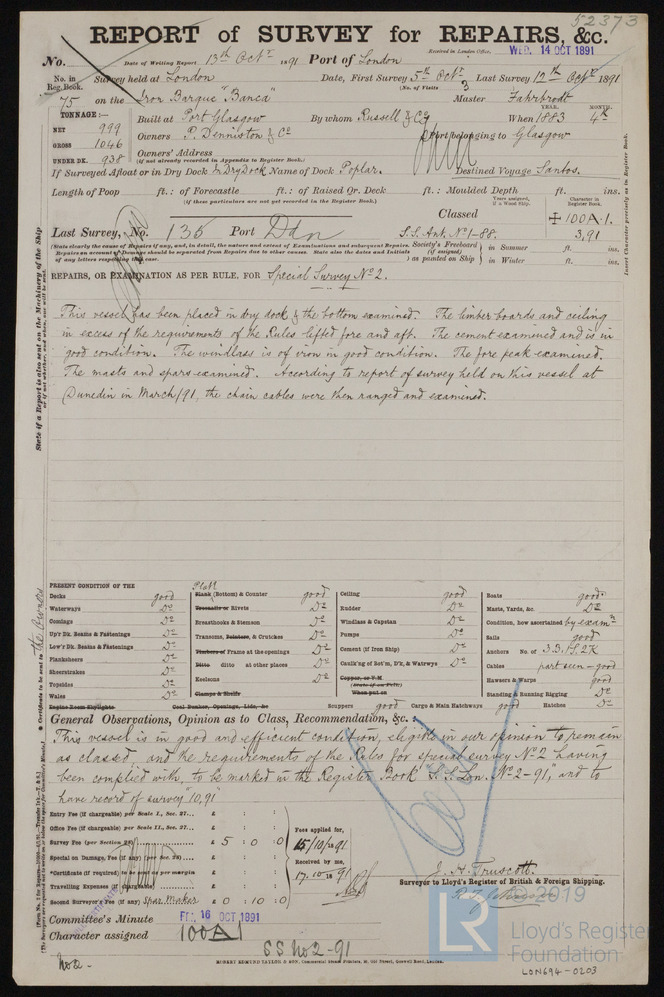 52373
REPORT of SURVEY for REPAIRS, &c.
Received in London Office, WED. 14 OCT 1891
No. Date of Writing Report 13th Octr 1891 Port of London
No. in Reg. Book. Survey held at London Date, First Survey 5th Octr Last Survey 12th Octr 1891
(No. of Visits 3
75 on the Iron Barque "Banca" Master Fahrbrodt
TONNAGE:— YEAR. MONTH.
Built at Port Glasgow By whom Russell & Co When 1883 4th
NET 999
GROSS 1046 Owners P. Denniston & Co Port belonging to Glasgow
UNDER DK. 938 Owners' Address
(if not already recorded in Appendix to Register Book.)
If Surveyed Afloat or in Dry Dock In Dry Dock Name of Dock Poplar. Destined Voyage Santos.
Length of Poop ft.: of Forecastle ft.: of Raised Qr. Deck ft.: Moulded Depth ft. ins.
(if these particulars are not yet recorded in the Register Book.)
Years assigned, if a Wood Ship. Character in Register Book.
Classed + 100 A.1.
Last Survey, No. 136 Port Ddn S.S. Ant. No 1-88. 3,91
Society's Freeboard (if assigned) as painted on Ship } in Summer ft. ins.
in Winter ft. ins.
REPAIRS, OR EXAMINATION AS PER RULE, FOR Special Survey No 2.
This vessel has been placed in dry dock & the bottom examined. The limber boards and ceiling
in excess of the requirements of the Rules lifted fore and aft. The cement examined and is in
good condition. The windlass is of iron in good condition. The fore peak examined.
The masts and spars examined. According to report of survey held on this vessel at
Dunedin in March/91, the chain cables were then ranged and examined.
PRESENT CONDITION OF THE
Decks good
Waterways Do
Comings Do
Up'r Dk. Beams & Fastenings Do
Low'r Dk. Beams & Fastenings Do
Planksheers Do
Sheerstrakes Do
Topsides Do
Wales Do
Engine Room Skylights
Plati
Plank (Bottom) & Counter good
Treenails or Rivets Do
Breasthooks & Stemson Do
Transoms, Pointers, & Crutches Do
Timbers of Frame at the openings Do
Ditto ditto at other places Do
Keelsons Do
Clamps & Shelfs
Coal Bunker, Openings, Lids, &c
Ceiling good
Rudder Do
Windlass & Capstan Do
Pumps Do
Cement (if Iron Ship) Do
Caulk'ng of Bot'm, D'k, & Watrwys Do
Copper, or Y.M.
(State if on Felt)
When put on
Scuppers good Cargo & Main Hatchways good
Boats good
Masts, Yards, &c. Do
Condition, how ascertained by examn
Sails good
Anchors No. of 3.B. 1S. 2K
Cables part seen - good
Hawsers & Warps good
Standing & Running Rigging Do
Hatches Do
General Observations, Opinion as to Class, Recommendation, &c. :
This vessel is in good and efficient condition, eligible in our opinion to remain
as classed, and the requirements of the Rules for special survey No 2 having
been complied with, to be marked in the Register Book "S.S. Lon. No 2-91", and to
have record of survey "10,91"
Entry Fee (if chargeable) per Scale I., Sec. 27... £ : :
Office Fee (if chargeable) per Scale II., Sec. 27... £ : :
Survey Fee (per Section 28) £ 5 : 0 : 0
Special on Damage, Fee (if any) (per Sec. 28)... £ : :
*Certificate (if required) to be sent as per margin £ : :
Travelling Expenses (if chargeable) £ : :
Second Surveyor's Fee (if any) Spar Maker £ 0 : 10 : 0
Fees applied for,
15/10/1891
Received by me,
17.10.1891
J. H. Truscott.
Surveyor to Lloyd's Register of British & Foreign Shipping.
Committee's Minute FRI. 16 OCT 1891
Character assigned 100A1
SS No 2-91
No 2-
ROBERT EDMUND TAYLOR & SON, Commercial Steam Printers, 19, Old Street, Goswell Road, London.
© 2019
LR
Lloyd's Register
Foundation
LON694-0203